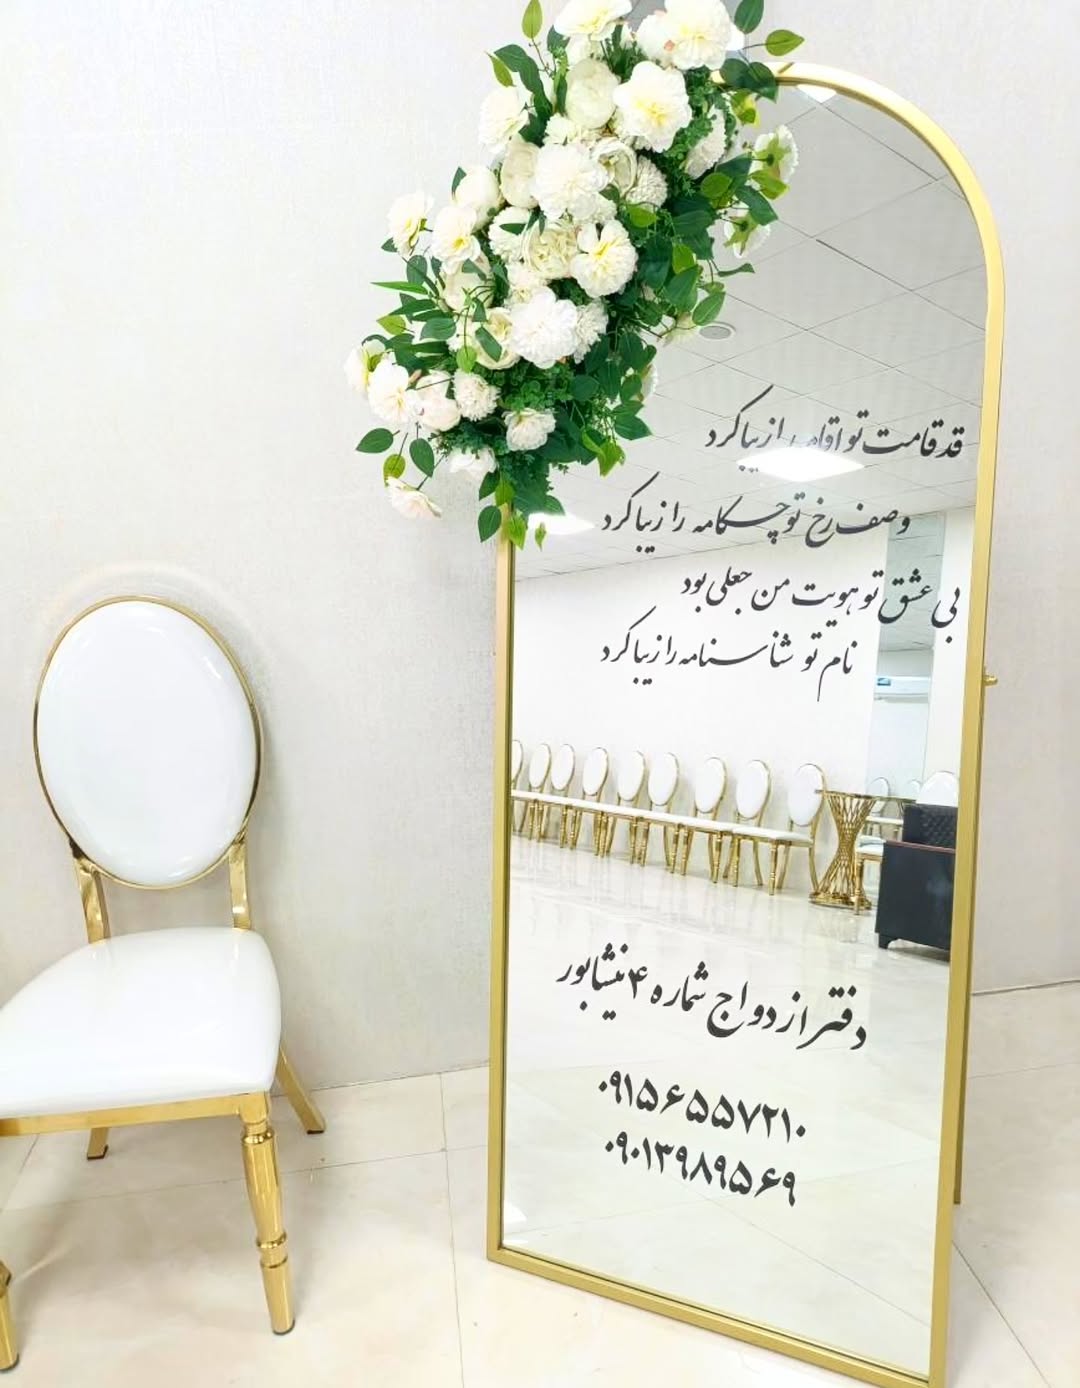 قد قامت تو اقامه را زیبا کرد
وصف رخ تو چکامه را زیبا کرد
بی عشق تو هویت من جعلی بود
نام تو شناسنامه را زیبا کرد
دفتر ازدواج شماره ۴ نیشابور
۰۹۱۵۶۵۵۷۲۱۰
۰۹۰۱۳۹۸۹۵۶۹